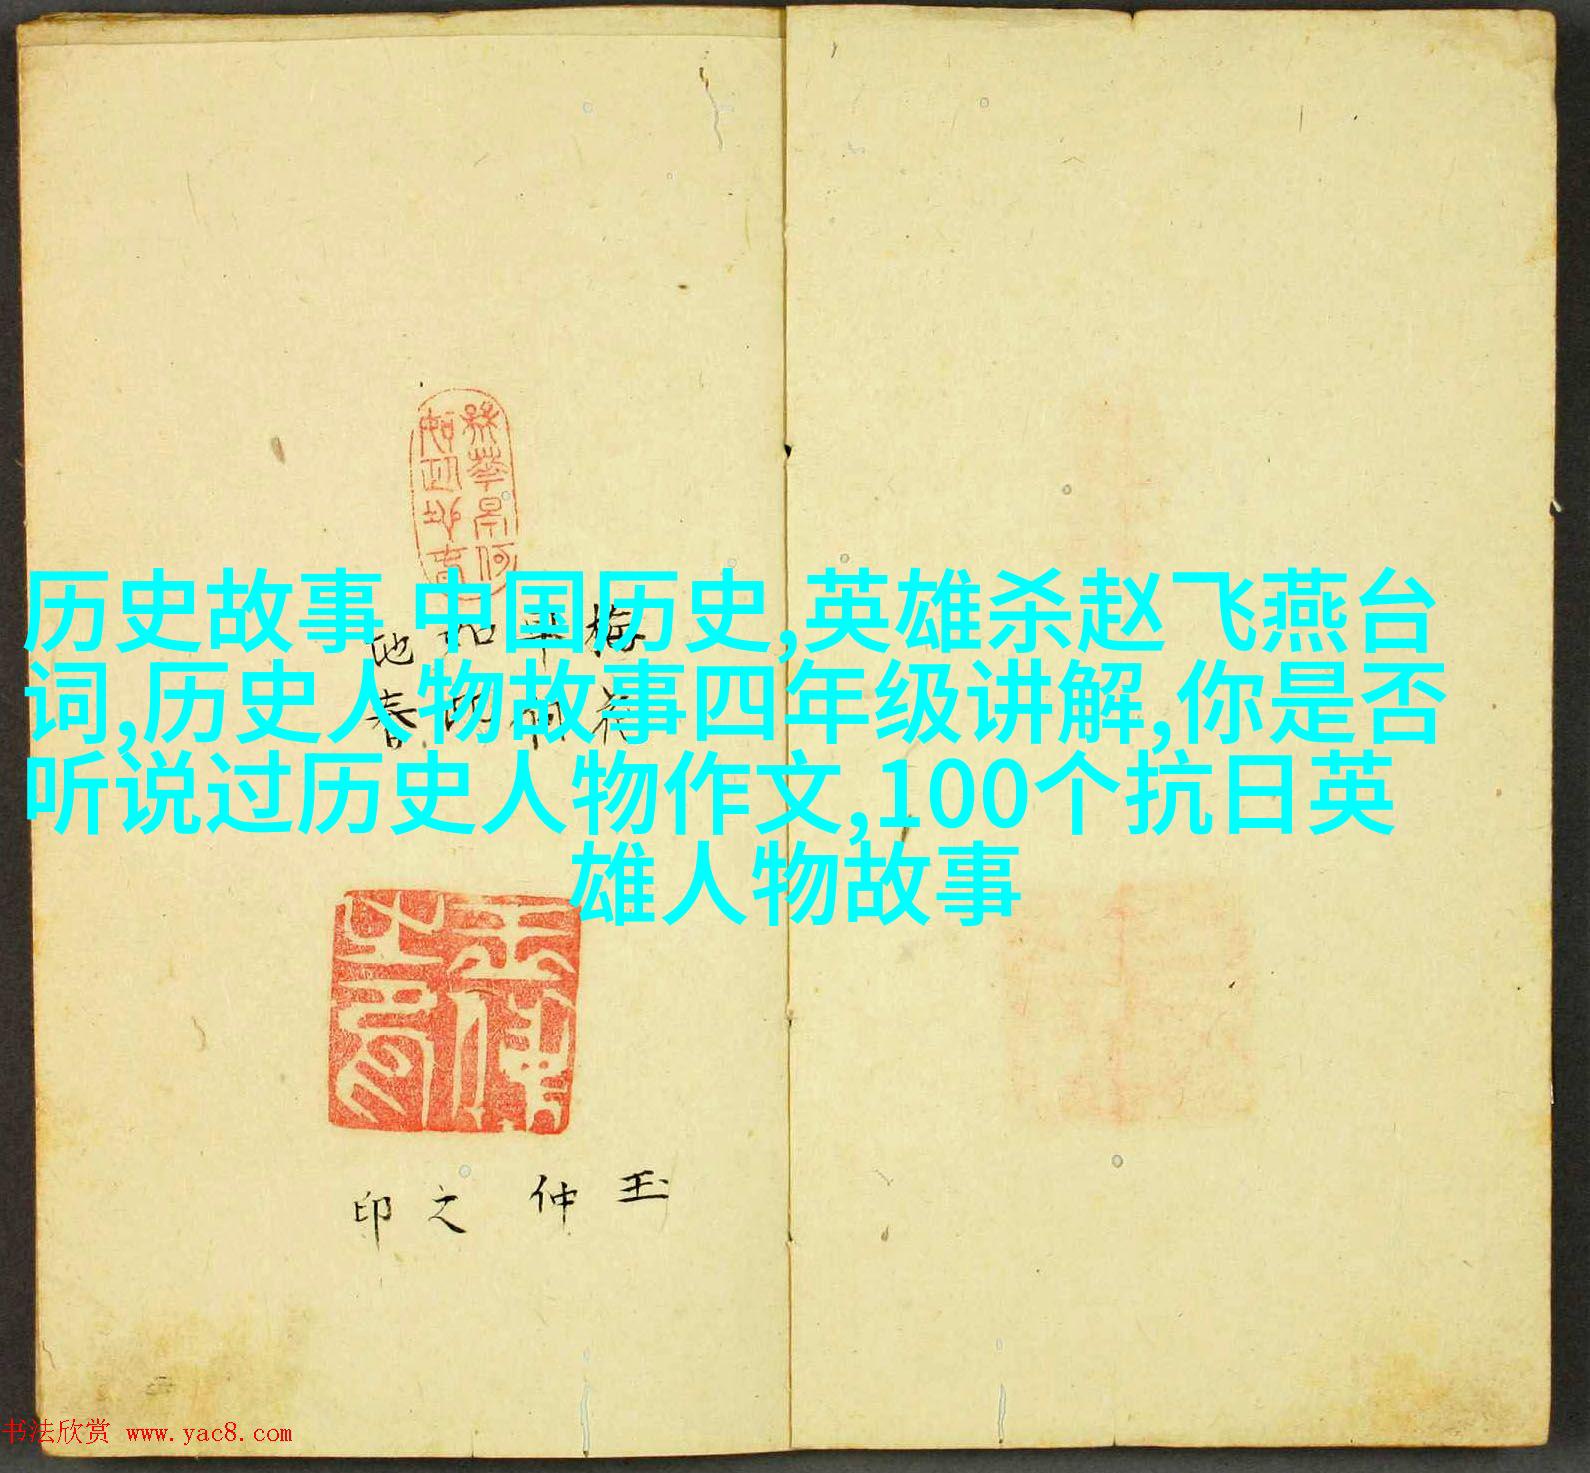 历史故事 中国历史,英雄杀赵飞燕台
词,历史人物故事四年级讲解,你是否
听说过历史人物作文,100个抗日英
雄人物故事
玉仲之印
书法欣赏 www.yac8.com